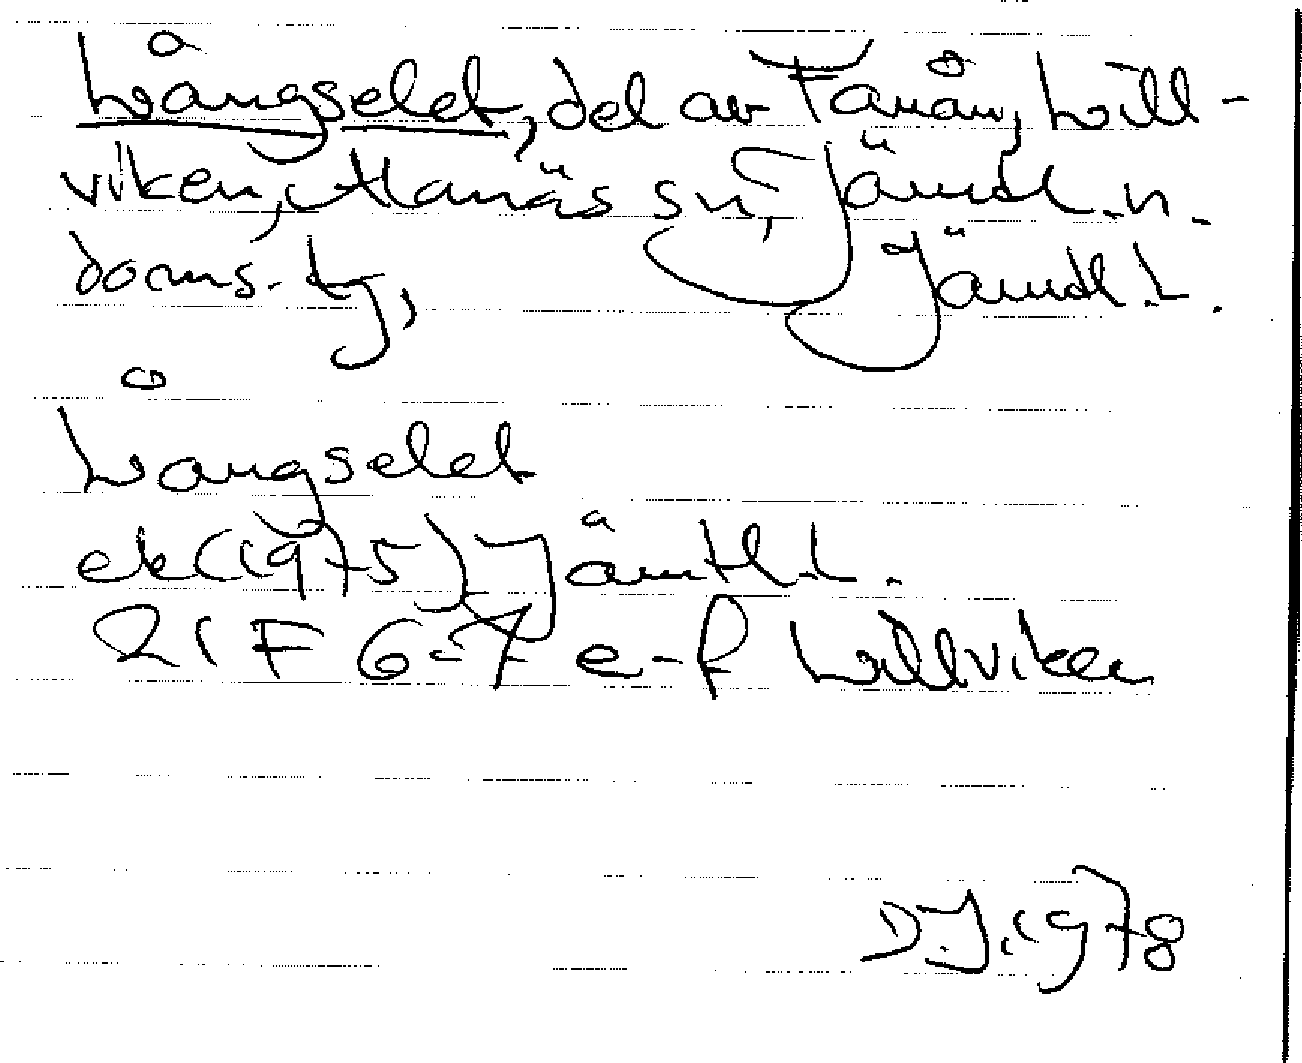 Långselet, del av Fanån, Lill-
viken, Alanäs sn, Jämtl. n.
doms.-tj, Jämtl. l.
Långselet
ek (1975) Jämtl. L.
21 F 6-7 e-f Lillviken
D.J. 1978